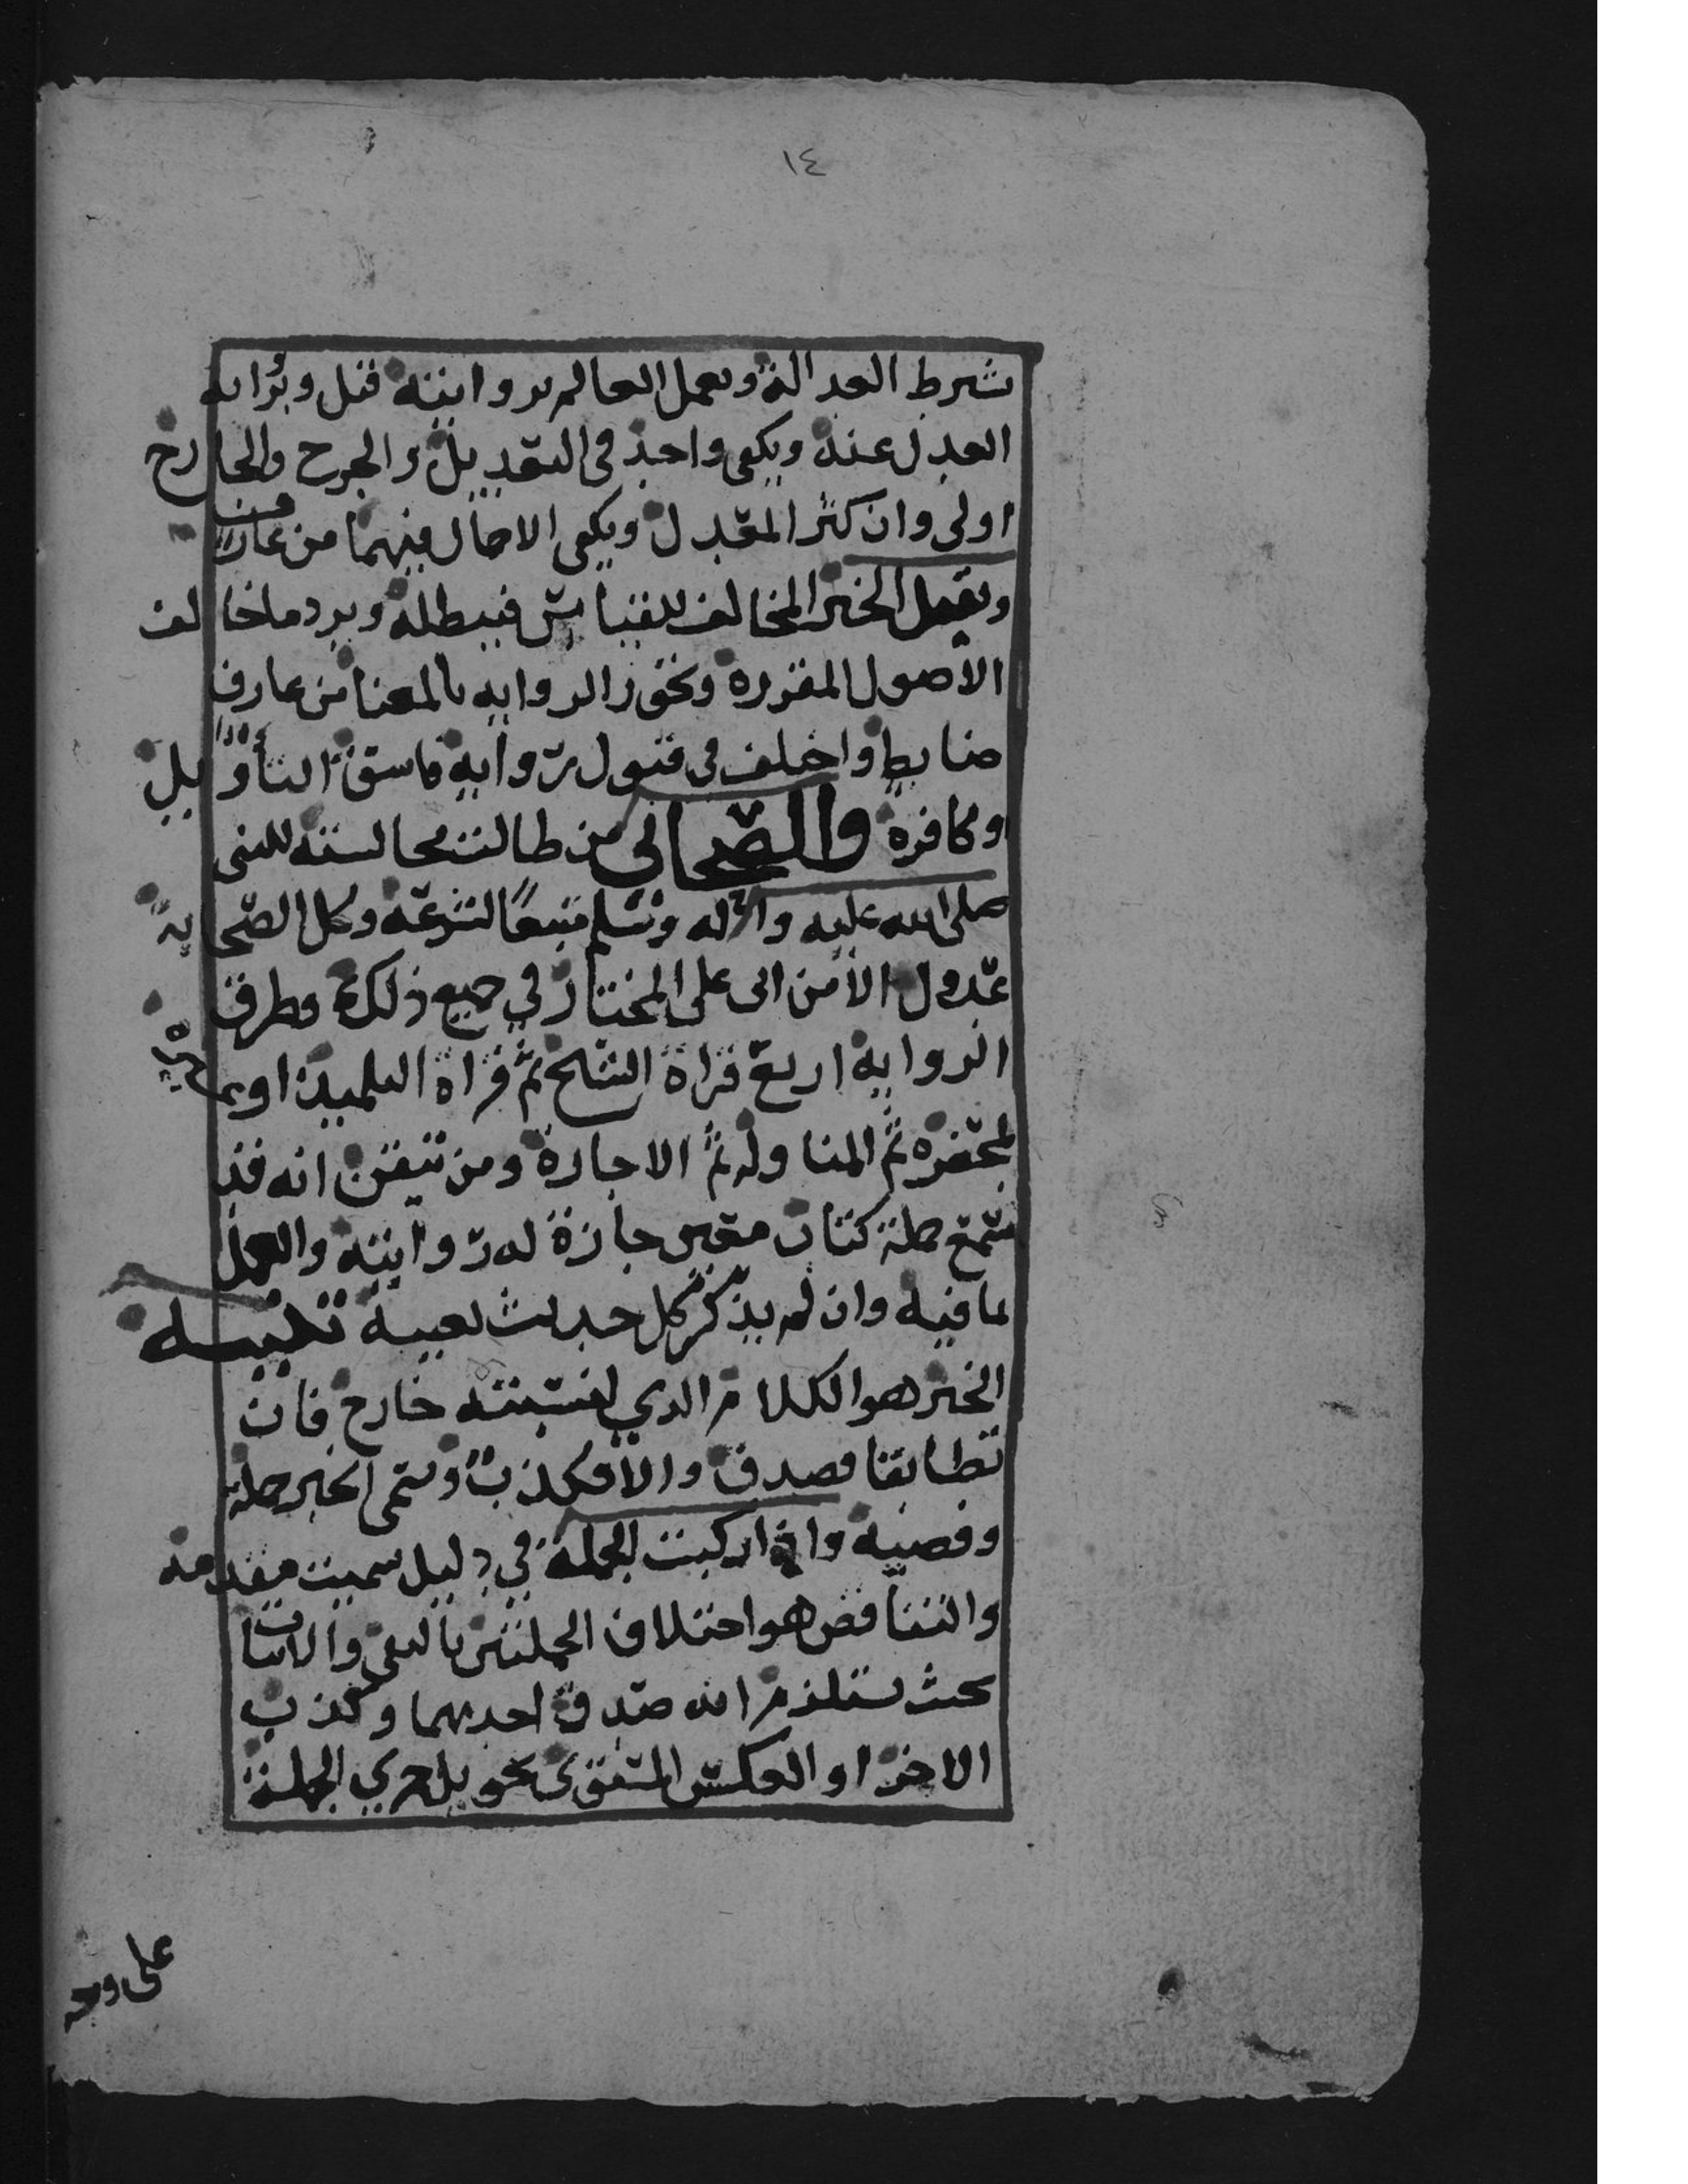 ١٤
بشرط العدالة وبعمل العالم بروايته قيل وبرواية
العدل عنه ويكفي واحد في التعديل والجرح والجارح
اولى وان كثر المعدل ويكفي الاجمال فيهما من عارف
ويقبل الخبر المخالف للقياس فيبطله ويرد ما خالف
الأصول المقررة وتجوز الرواية بالمعنا من عارف
ضابط واختلف في قبول رواية فاسق التأويل
وكافره والصحابي من طالت مجالسته للنبي
صلى الله عليه واله وسلم متبعًا لشرعه وكل الصحابة
عدول الا من ابى على المختار في جميع ذلك وطرق
الرواية اربع قراة الشيخ ثم قراة التلميذ او غيره
بمحضره ثم المناولة ثم الاجازة ومن تيقن انه قد
سمع جملة كتاب معين جازة له روايته والعمل
بما فيه وان لم يذكر كل حديث بعينه تنبيه
الخبر هو الكلام الذي لنسبته خارج فان
تطابقا فصدق والا فكذب وسمى الخبر جملة
وقضية واذا ركبت الجملة في دليل سميت مقدمة
والتناقض هو اختلاف الجملتين بالنفي والاثبات
بحيث يستلزم لذاته صدق احديهما وكذب
الاخرا والعكس المستوي تحويل جزي الجملة
على وجه